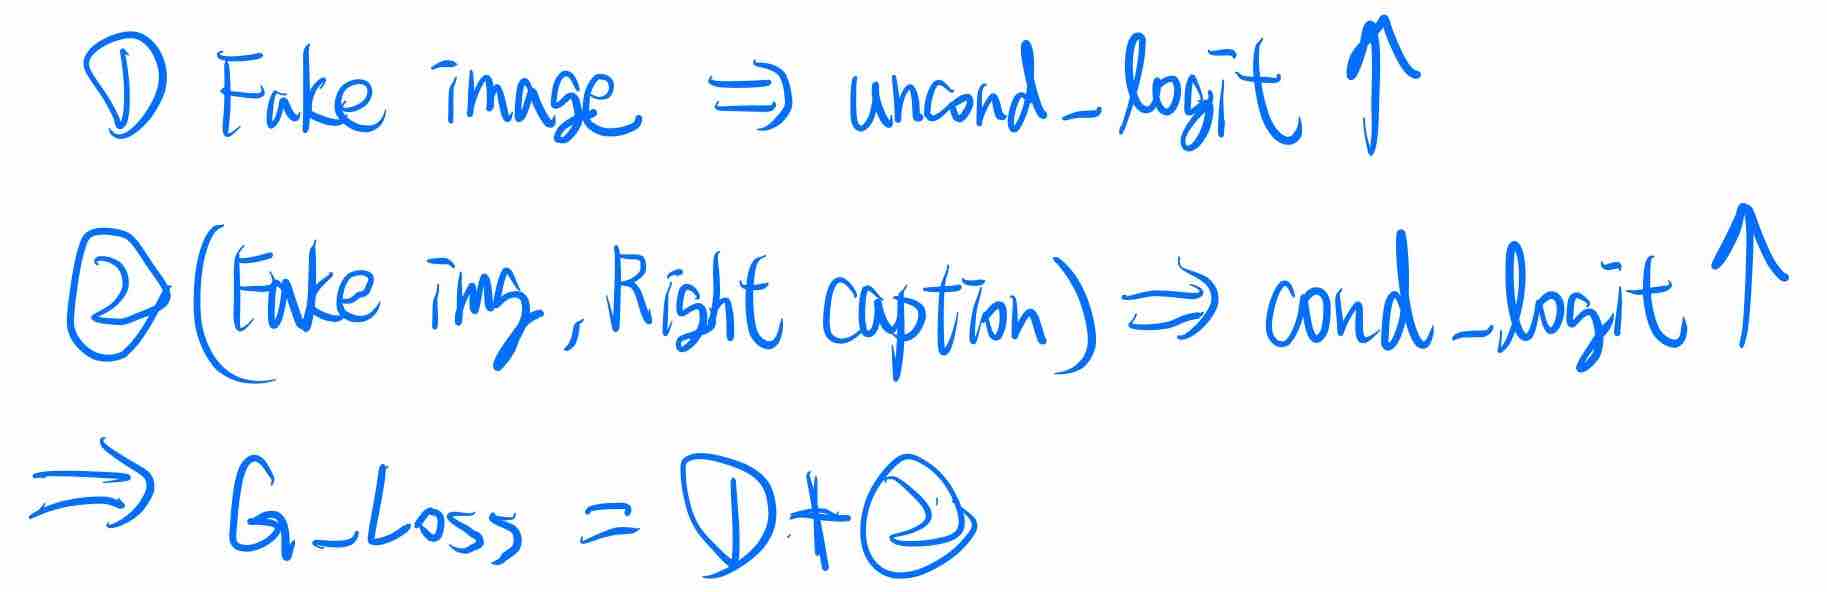 ① Fake image ⇒ uncond_logit ↑
② (Fake img, Right caption) ⇒ cond_logit ↑
⇒ G_Loss = ① + ②